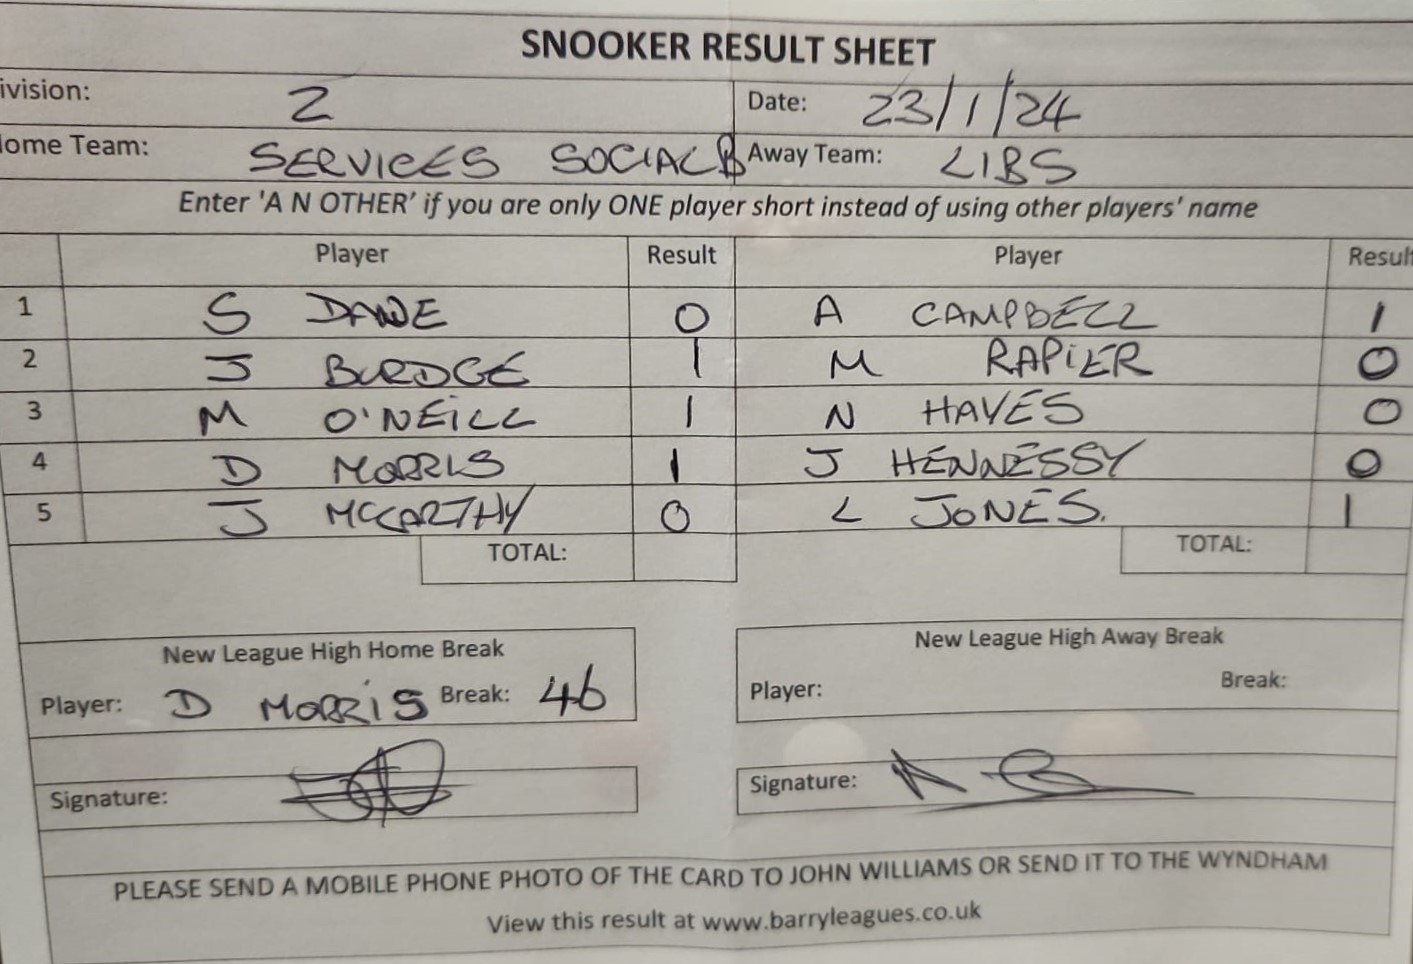 SNOOKER RESULT SHEET
ivision: 2 Date: 23/1/24
ome Team: SERVICES SOCIAL B Away Team: LIBS
Enter 'A N OTHER' if you are only ONE player short instead of using other players' name
Player Result Player Resul
1 S DAWE 0 A CAMPBELL 1
2 J BURDGE 1 M RAPIER 0
3 M O'NEILL 1 N HAYES 0
4 D MORRIS 1 J HENNESSY 0
5 J MCCARTHY 0 L JONES. 1
TOTAL: TOTAL:
New League High Home Break New League High Away Break
Player: D MORRIS Break: 46 Player: Break:
Signature: Signature:
PLEASE SEND A MOBILE PHONE PHOTO OF THE CARD TO JOHN WILLIAMS OR SEND IT TO THE WYNDHAM
View this result at www.barryleagues.co.uk